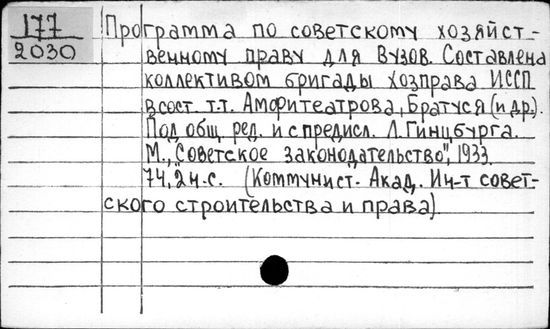 177
2030
Программа по советскому хозяйст-
венному праву для Вузов. Составлена
коллективом бригады хозправа ИССП
в сост. т.т. Амфитеатрова, Братуся (и др.).
Под общ. ред. и с предисл. Л. Гинцбурга.
М., "Советское законодательство", 1933.
74, 2 н.с. (Коммунист. Акад. Ин-т совет-
ского строительства и права).